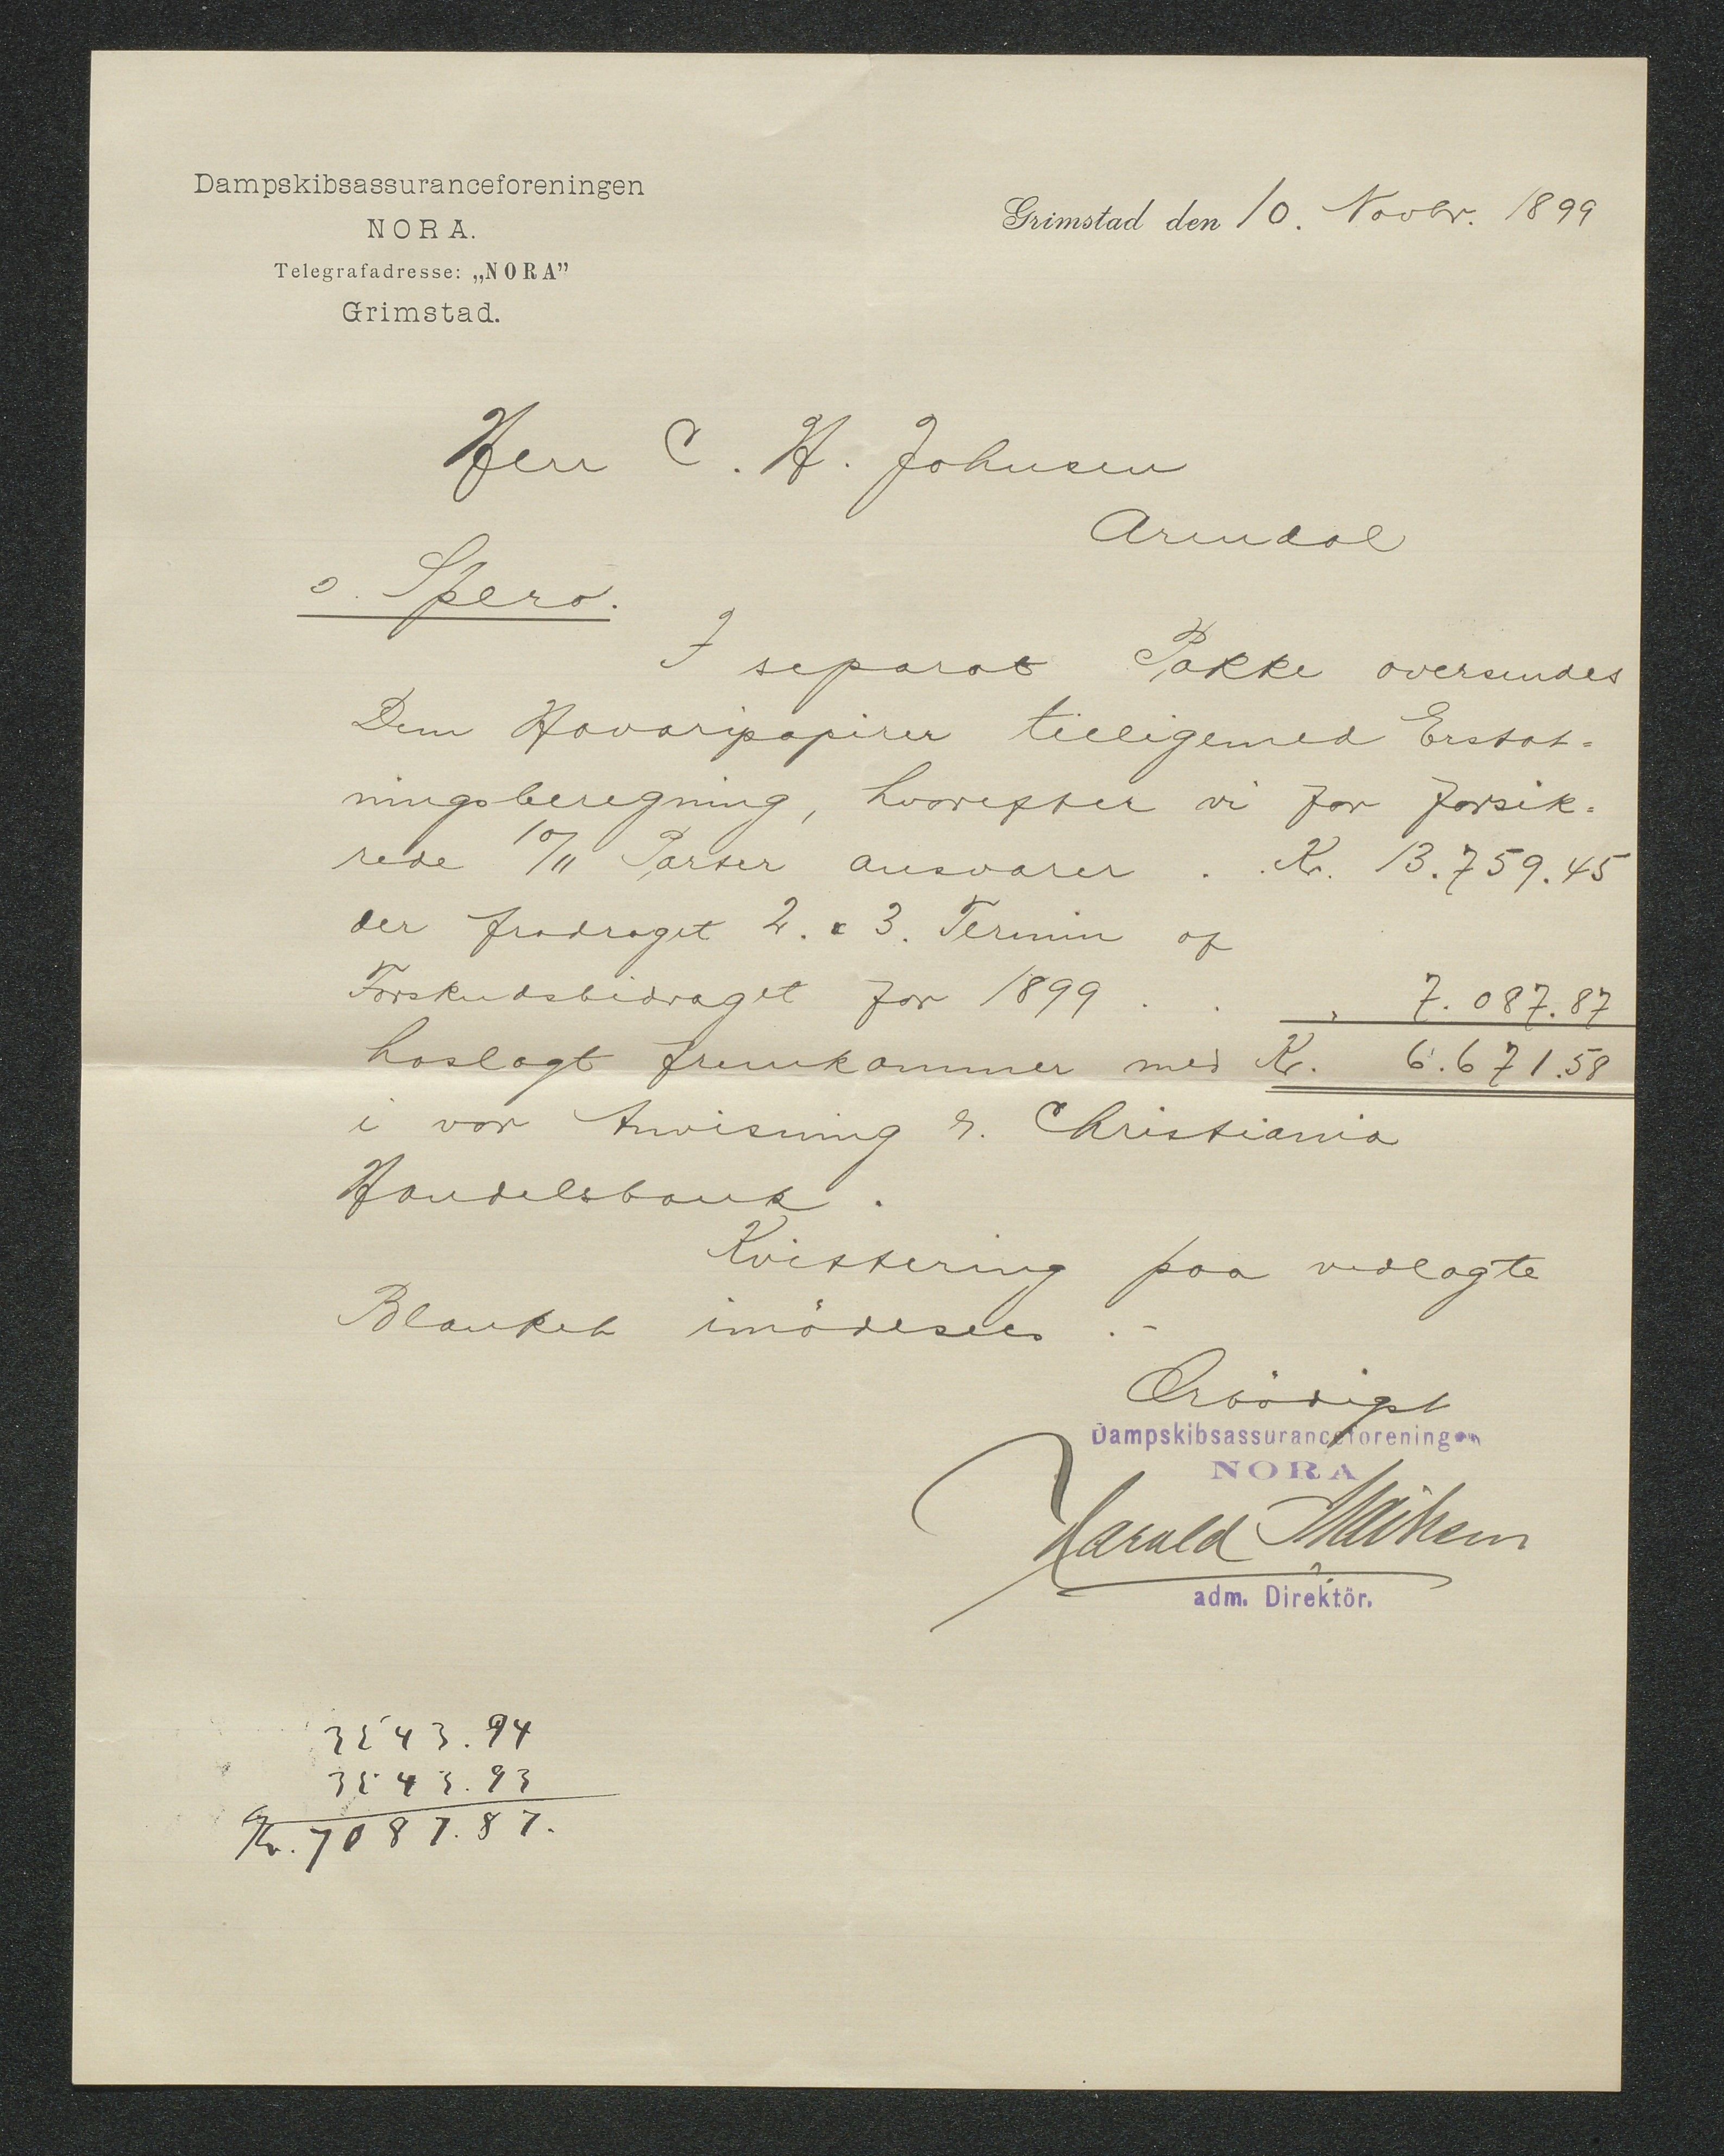 Dampskibsassuranceforeningen
NORA.
Telegrafadresse: „NORA”
Grimstad.
Grimstad den 10. Novbr. 1899
Herr C. H. Johnsen
Arendal
s. Spero.
I separat Pakke oversendes
Dem Havaripapirer tilligemed Erstat=
ningsberegning, hvorefter vi for forsik=
rede 10/11 Parter ansvarer . . Kr. 13.759.45
der fradraget 2. & 3. Termin af
Forskudsbidraget for 1899 . . „ 7.087.87
hoslagt fremkommer med Kr. 6.671.58
i vor Anvisning p. Christiania
Handelsbank.
Kvittering paa vedlagte
Blanket imödesees.-
Ærbödigst
Dampskibsassuranceforeningen
NORA
Harald
adm. Direktör.
3543.94
3543.93
Kr. 7087.87.